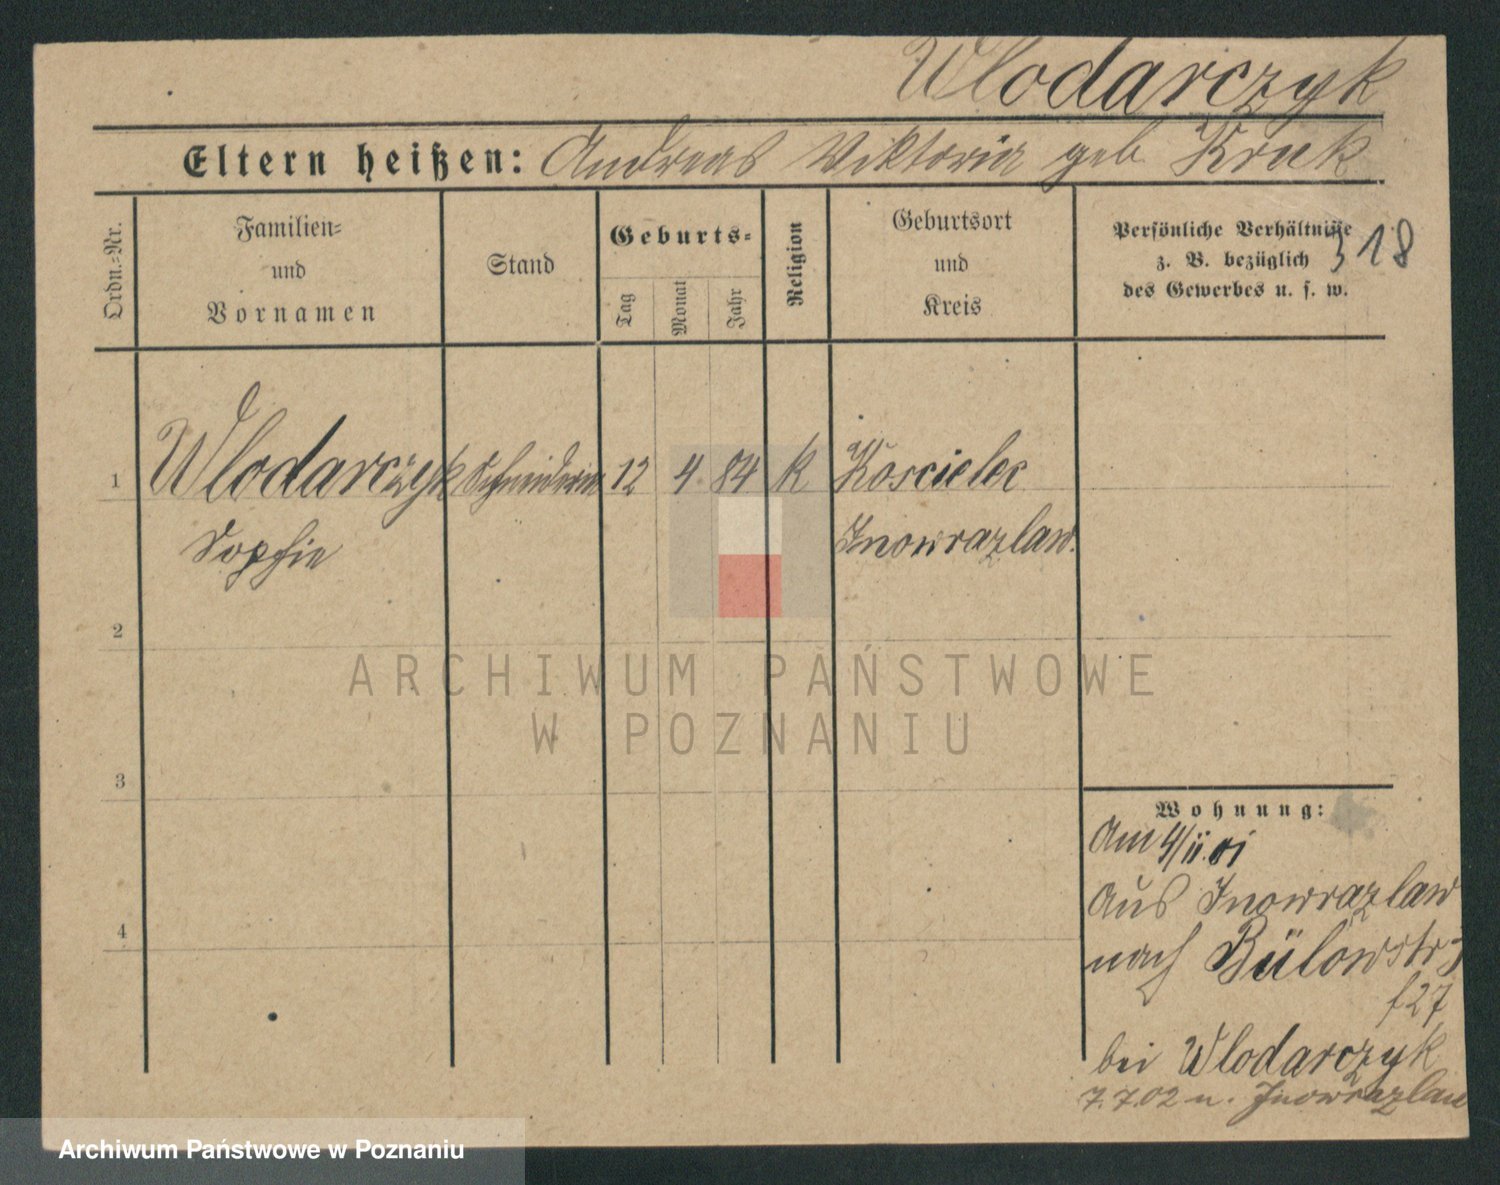 Wlodarczyk
Eltern heißen: Andreas Viktoria geb. Kruk
Ordn.-Nr.
Familien-
und
Vornamen
Stand
Geburts-
Tag
Monat
Jahr
Religion
Geburtsort
und
Kreis
Persönliche Verhältnisse
z. B. bezüglich
des Gewerbes u. s. w.
318
1 Wlodarczyk Schneiderin 12 4 84 K Koscielec
Sophie Inowrazlaw.
2
3
4
Wohnung:
Am 4/11.01
aus Inowrazlaw
nach Bülowstr
27
bei Wlodarczyk
7.7.02 n. Inowrazlaw
ARCHIWUM PAŃSTWOWE
W POZNANIU
Archiwum Państwowe w Poznaniu